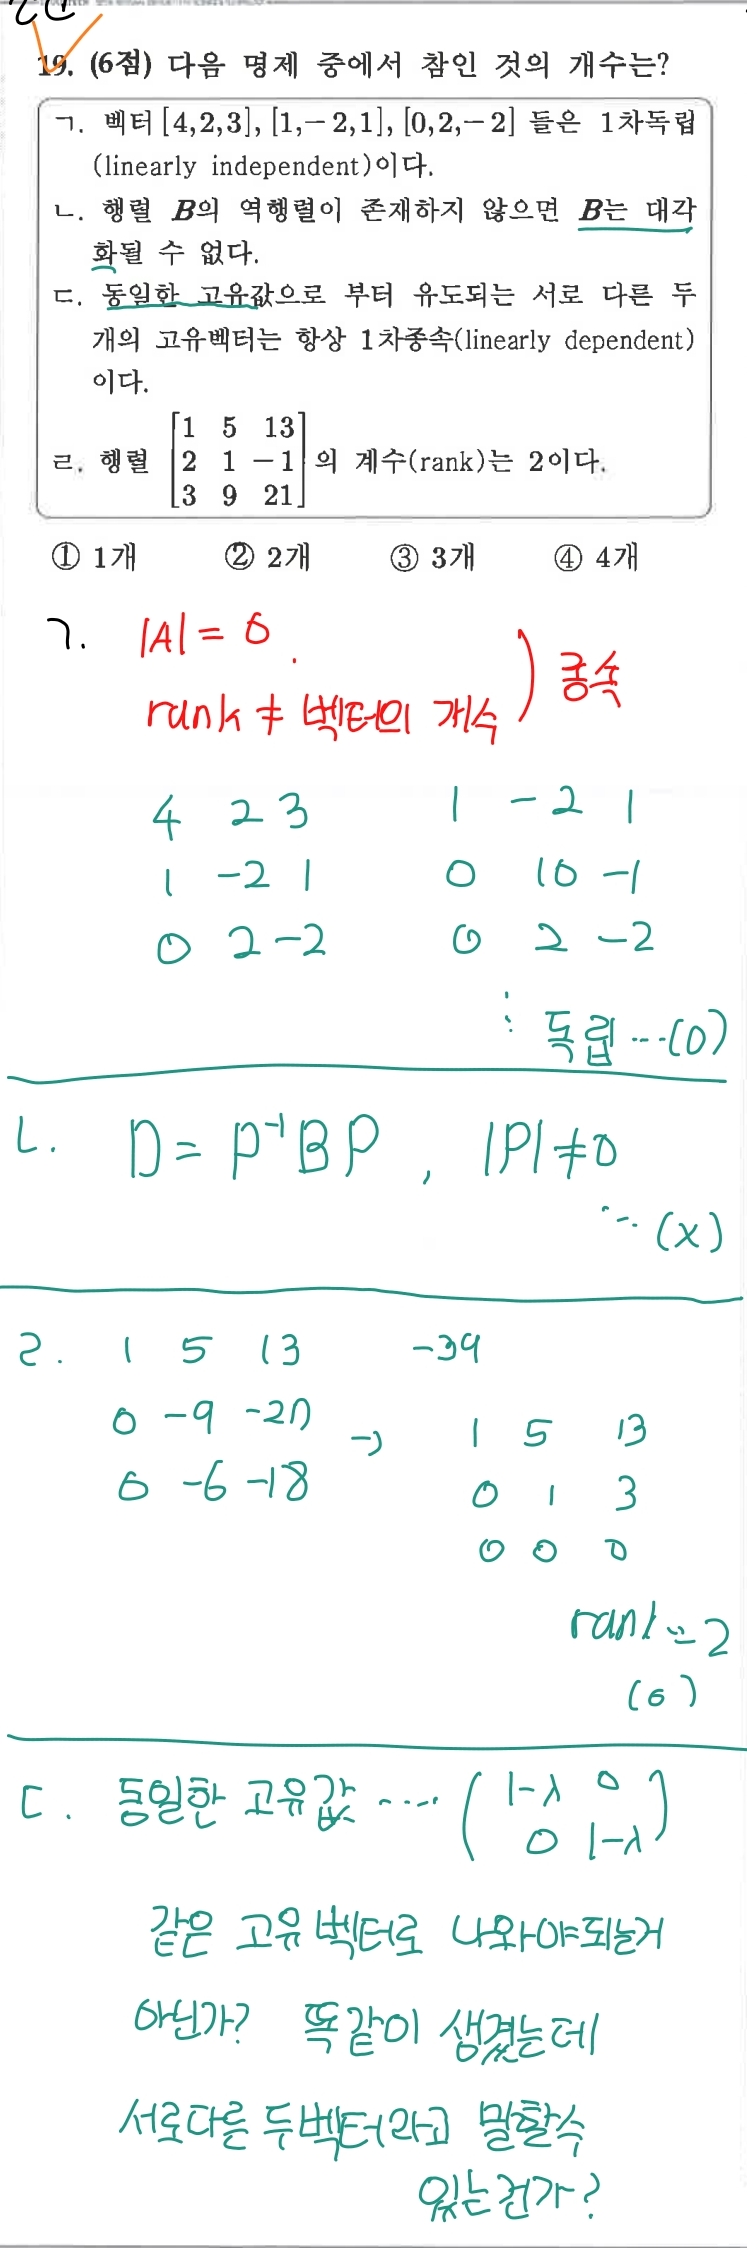 19. (6점) 다음 명제 중에서 참인 것의 개수는?
ㄱ. 벡터 [4,2,3], [1,−2,1], [0,2,−2] 들은 1차독립
(linearly independent)이다.
ㄴ. 행렬 B의 역행렬이 존재하지 않으면 B는 대각
화될 수 없다.
ㄷ. 동일한 고유값으로 부터 유도되는 서로 다른 두
개의 고유벡터는 항상 1차종속(linearly dependent)
이다.
ㄹ. 행렬 [1 5 13
2 1 −1
3 9 21] 의 계수(rank)는 2이다.
① 1개 ② 2개 ③ 3개 ④ 4개
ㄱ. |A| = 0.
rank ≠ 벡터의 개수 ) 종속
4 2 3 1 -2 1
1 -2 1 0 10 -1
0 2 -2 0 2 -2
∴ 독립 ...(0)
ㄴ. D = P⁻¹BP , |P| ≠ 0
... (x)
ㄹ. 1 5 13 -39
0 -9 -27 → 1 5 13
0 -6 -18 0 1 3
0 0 0
rank = 2
(0)
ㄷ. 동일한 고유값 .... (1-λ 0
0 1-λ)
같은 고유벡터로 나와야되는거
아닌가? 똑같이 생겼는데
서로다른 두벡터라고 말할수
있는건가?